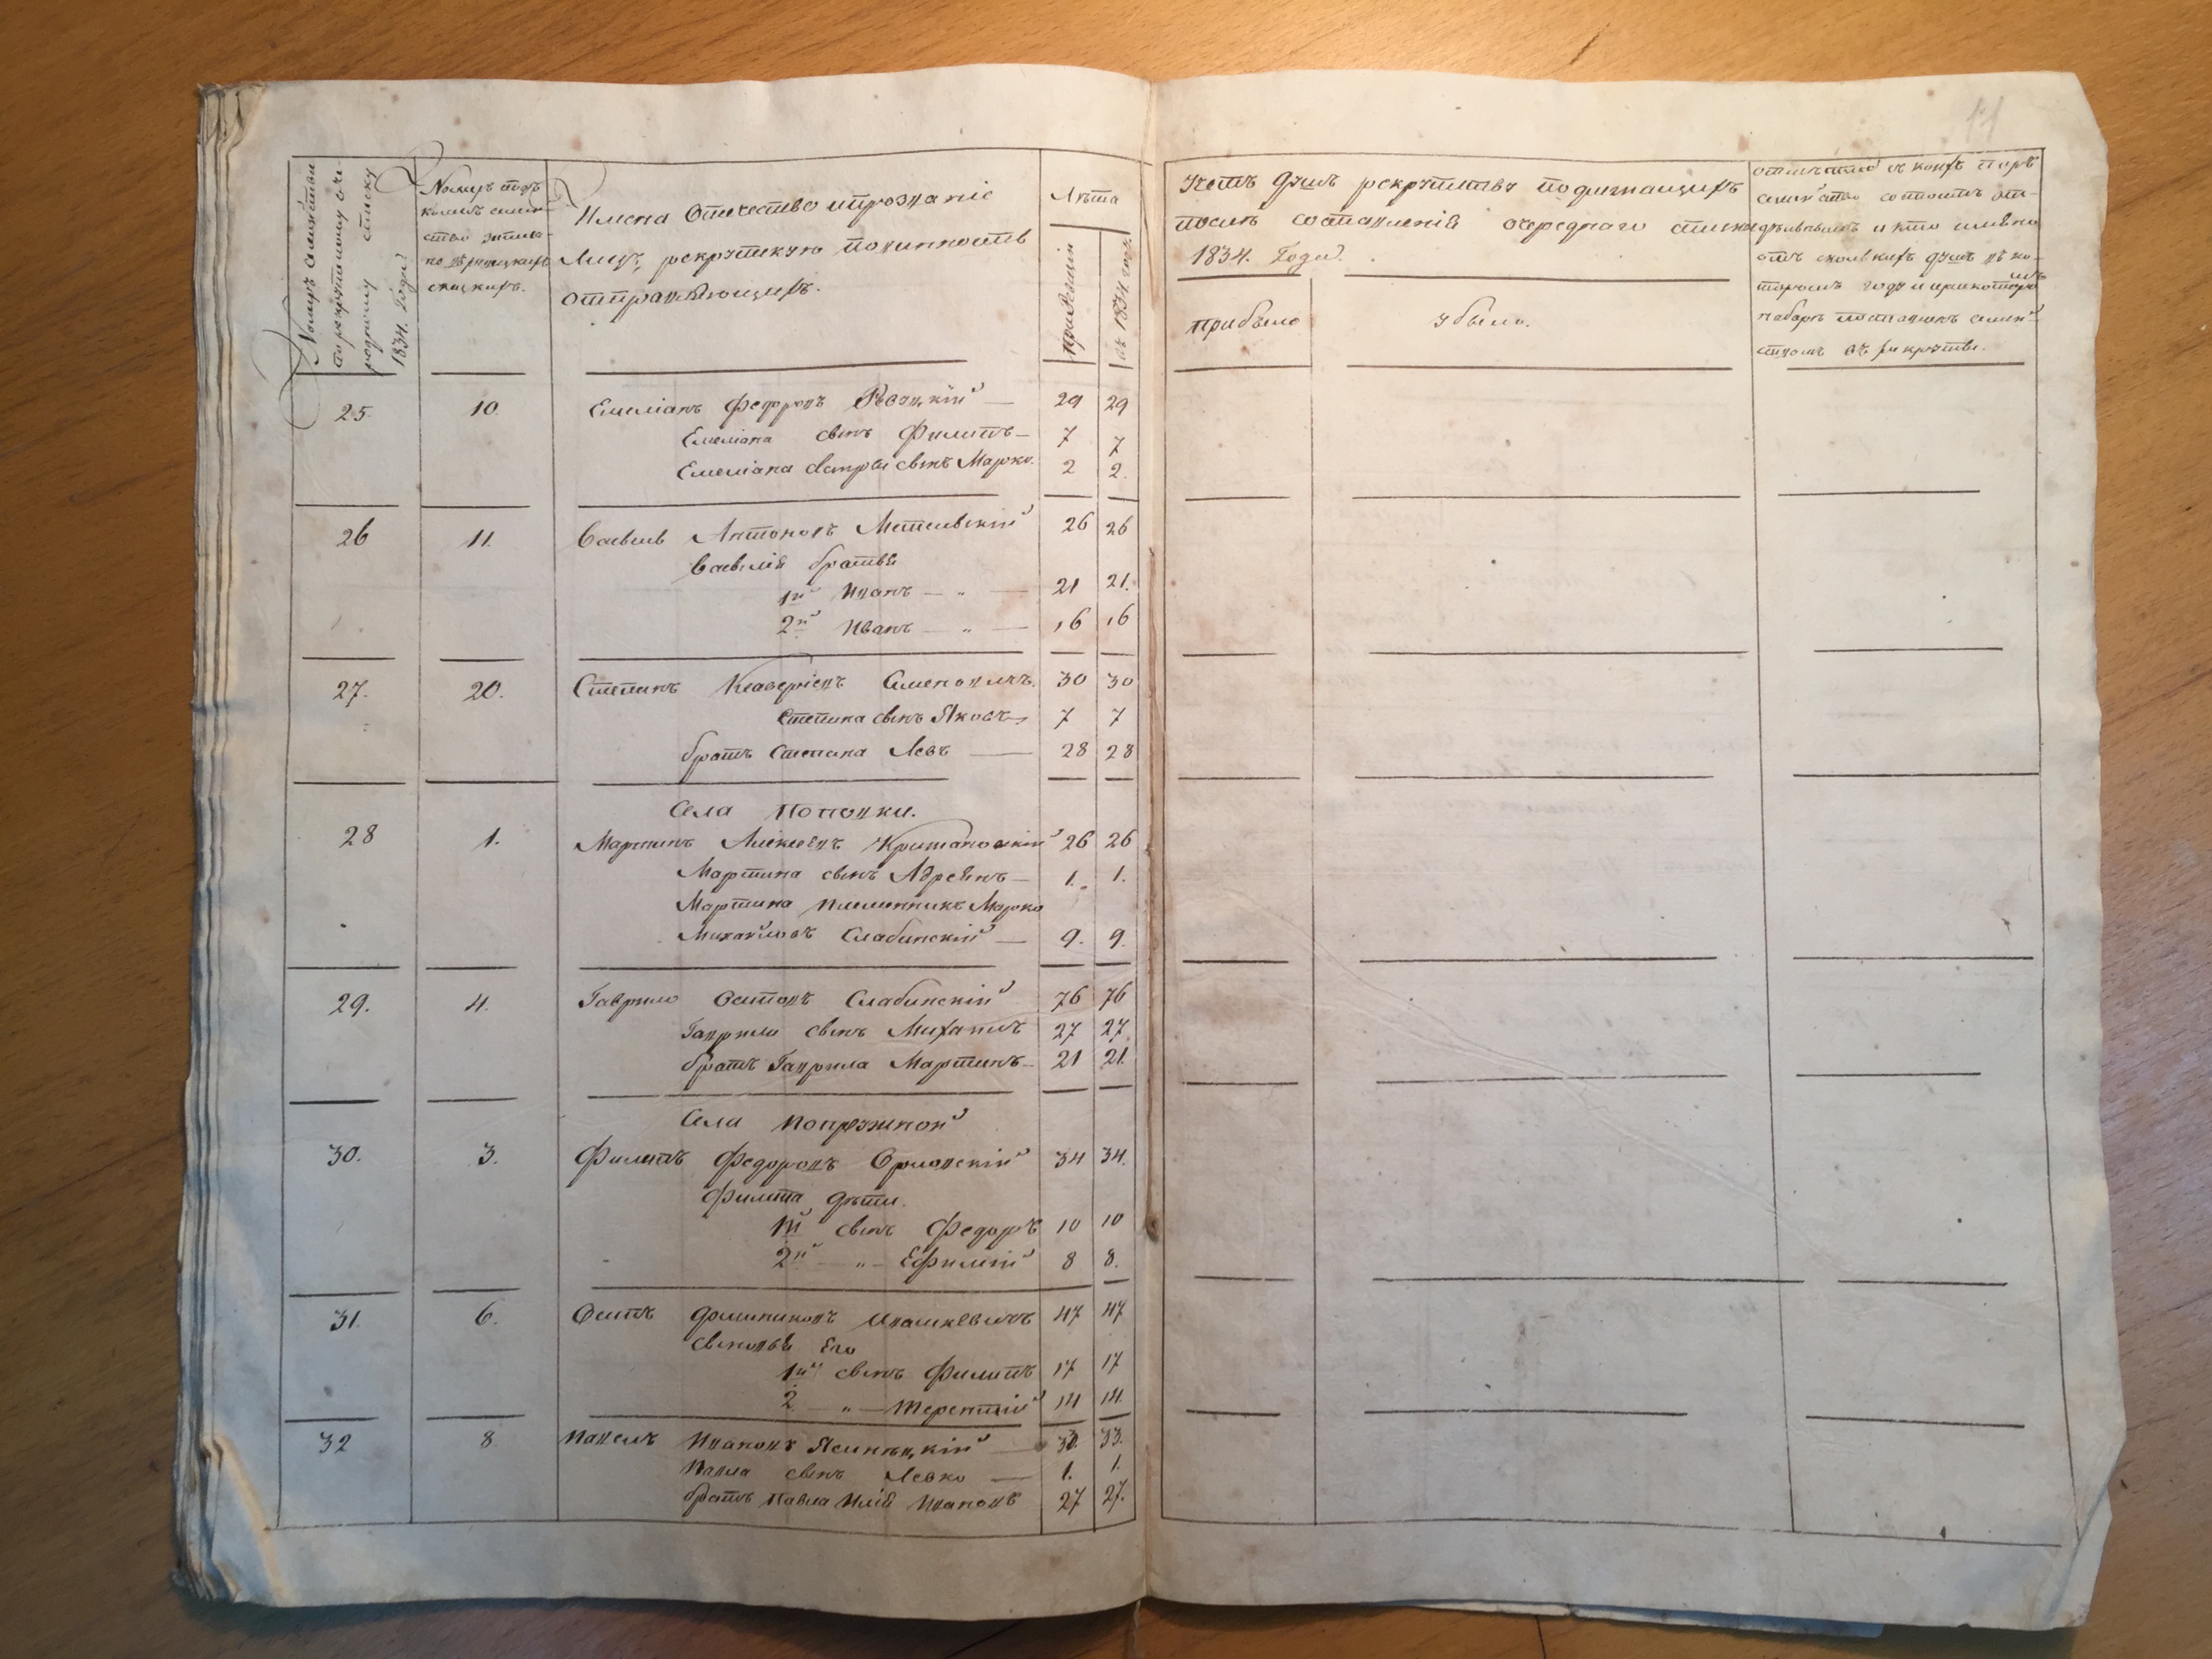 11
Номеръ семейства
по рекрутскому оче-
редному списку
1834. Года.
Номеръ подъ
коимъ семей-
ство записа-
но въ ревизскихъ
сказкахъ.
Имена Отечество и прозваніе
Лицъ, рекрутскую повинность
отправляющихъ.
Лѣта
при Ревизіи
въ 1834 году.
Учетъ душъ рекрутству подлежащихъ
послѣ составленія очереднаго списка
1834. Года.
прибыло
убыло.
семейство состоитъ
и кто имѣнно
отъ сколькихъ душъ въ ко-
торомъ году и при которомъ
наборѣ поставленъ семей-
ствомъ въ рекруты.
25. 10. Емеліанъ Федоровъ 29 29
Емеліана сынъ Филипъ 7 7
Емеліана сестры сынъ Марко. 2 2.
26 11. Василь Антоновъ 26 26
Василія братья
1й Иванъ — „ — 21 21.
2й Иванъ — „ — 16 16
27. 20. Степанъ Ксаверіевъ Семеновичъ. 30 30
Степана сынъ Яковъ 7 7
братъ Степана Левъ — 28 28
Села Поповки.
28 1. Мартинъ Алексѣевъ 26 26
Мартина сынъ Адреянъ — 1. 1.
Мартина племенникъ Марко
Михайловъ Слабинскій — 9. 9.
29. 4. Гаврило Осиповъ Слабинскій 76 76
Гаврила сынъ Михаилъ 27 27
братъ Гаврила Мартинъ — 21 21.
Села Напружной
30. 3. Филипъ Федоровъ Орловскій 34 34.
Филипа дѣти.
1й сынъ Федоръ 10 10
2й — „ — Ефимій 8 8.
31. 6. Осипъ Доминиковъ Ивашкевичъ 47 47
Сыновья Его
1й сынъ Филипъ 17 17
2 — „ — Терентій 14 14.
32 8. Павелъ Ивановъ Ясинецкій — 33. 33.
Павла сынъ Левко — 1. 1.
братъ Павла Илія Ивановъ 27 27.